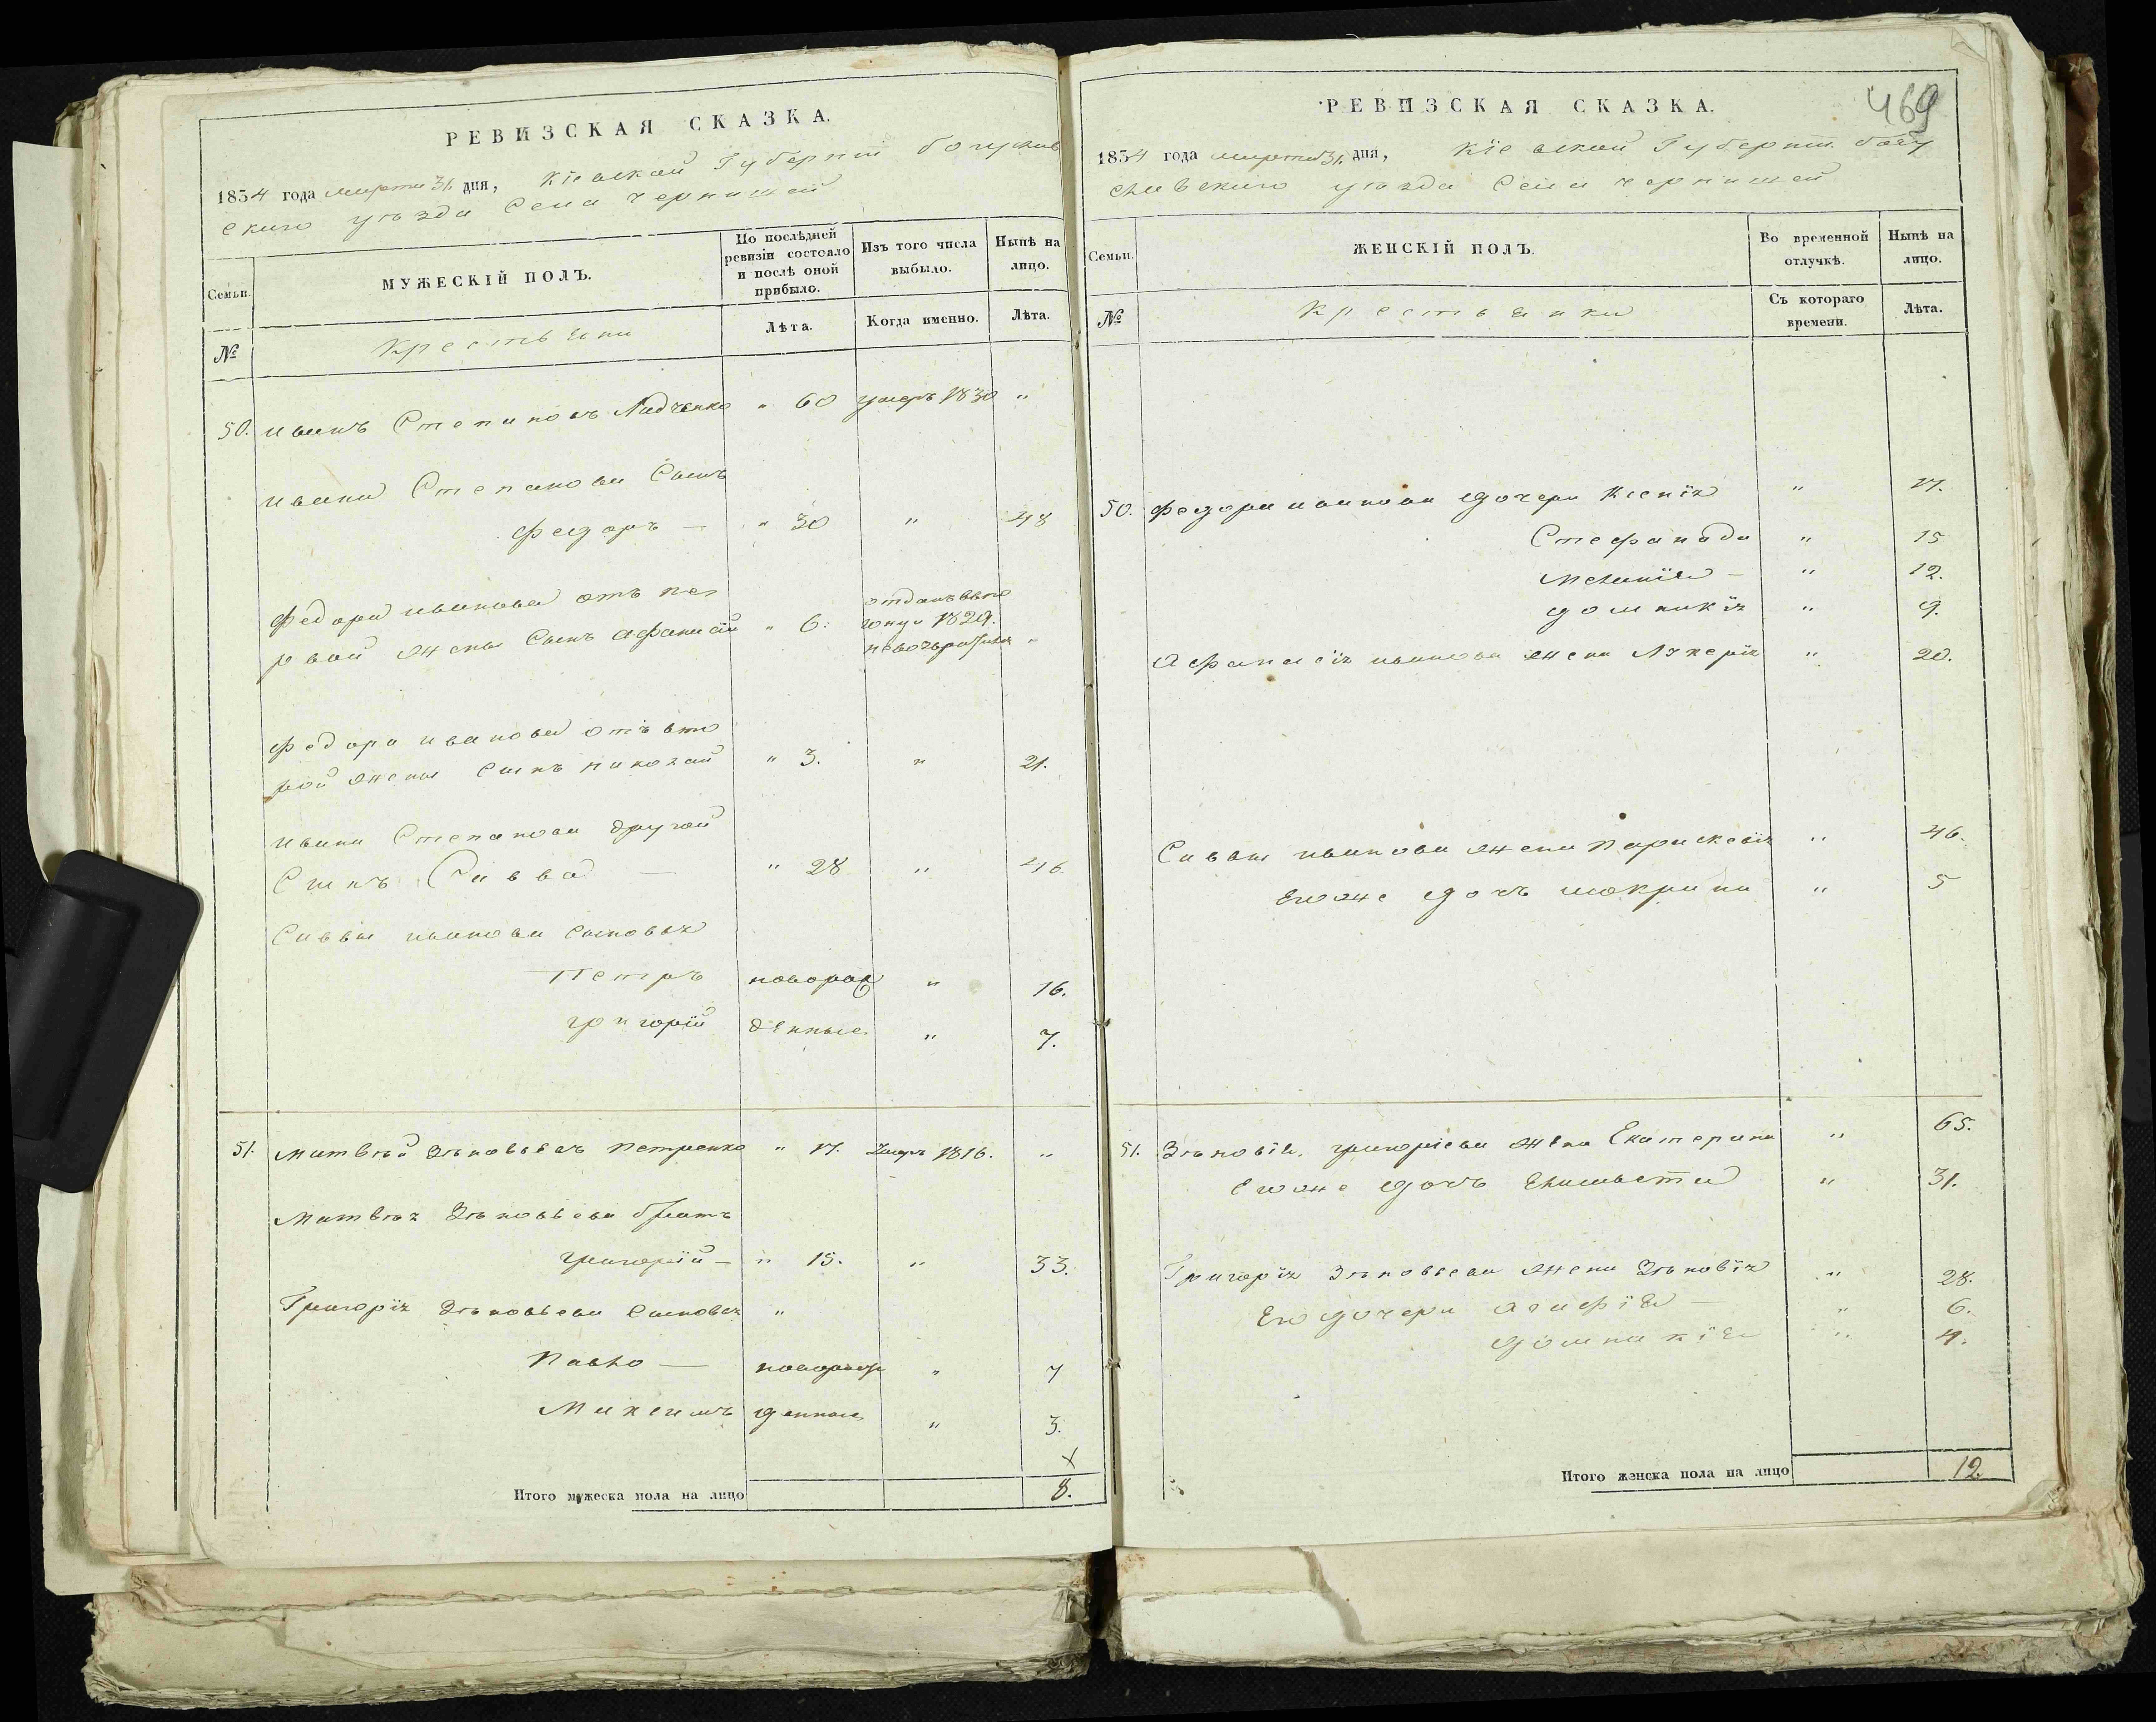 РЕВИЗСКАЯ СКАЗКА.
1834 года марта 31 дня, Кіевской Губерніи богуслав
скаго уѣзда Села чернишей
Семьи.
МУЖЕСКІЙ ПОЛЪ.
По послѣдней ревизіи состояло и послѣ оной прибыло.
Изъ того числа выбыло.
Нынѣ на лицо.
№
Крестьяни
Лѣта.
Когда именно.
Лѣта.
50. иванъ Степановъ " 60 умеръ 1830 "
ивана Степанова Сынъ
федоръ — " 30 " 48
федора иванова отъ пер
вой жены Сынъ афанасій " 6. отданъ въ 1829. "
федора иванова отъ вто
рой жены Сынъ николай " 3. " 21.
ивана Степанова другой
Сынъ Савва — " 28 " 46
Саввы иванова Сыновья
Петръ новорож " 16.
григорій денные " 7.
51. матвѣй Зѣновьевъ Петренко " 17. Умеръ 1816. "
матвѣя Зѣновьева братъ
григорій — " 15. " 33.
Григорія Зѣновьева Сыновья "
Павло — новорож " 7
Максимъ денные " 3.
х
Итого мужеска пола на лицо 8.
469
РЕВИЗСКАЯ СКАЗКА.
1834 года марта 31 дня, Кіевской Губерніи богу
славскаго уѣзда Села чернишей
Семьи.
ЖЕНСКІЙ ПОЛЪ.
Во временной отлучкѣ.
Нынѣ на лицо.
№
Крестьянки
Съ котораго времени.
Лѣта.
50. федора иванова дочери Ксенія " 17.
Стефанида " 15
меланія — " 12.
домникія " 9.
Афанасія иванова жена Лукерія " 20.
Саввы иванова жена Параскевія " 46.
Егоже дочь мокрина " 5
51. Зѣновія григоріева жена Екатерина " 65.
Егоже дочь Елисавета " 31.
Григорія Зѣновьева жена Зѣновія " 28.
Его дочери агафія — " 6.
домникія " 4.
Итого женска пола на лицо 12.